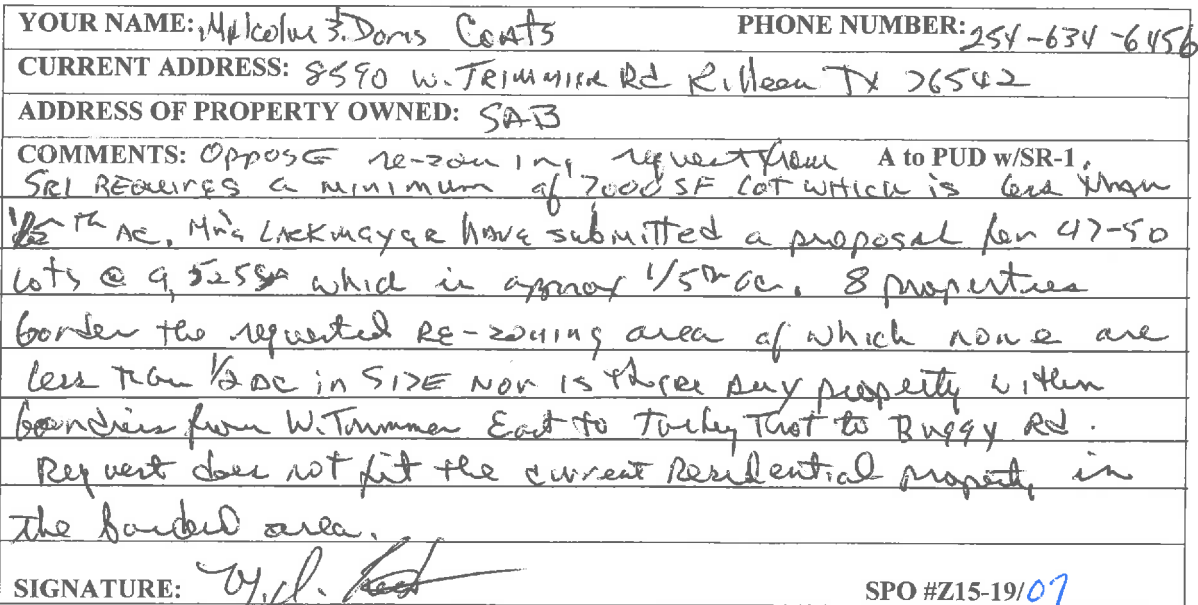 YOUR NAME: Malcolm & Doris Coats PHONE NUMBER: 254-634-6456
CURRENT ADDRESS: 8590 W. Trimmier Rd Killeen TX 76542
ADDRESS OF PROPERTY OWNED: SAB
COMMENTS: Oppose re-zoning request from A to PUD w/SR-1.
SR1 REQUIRES a minimum of 7000 SF LOT WHICH is less than
th AC. Lackmayar have submitted a proposal for 47-50
Lots @ 9,525 SF which is approx 1/5th ac. 8 properties
border the requested RE-zoning area of which none are
less than 1/2 ac in SIZE Nor is there any property within
boundries from W. Trimmer East to Turkey Trot to Buggy Rd.
Request does not fit the current Residential property in
the borded area.
SIGNATURE: SPO #Z15-19/07